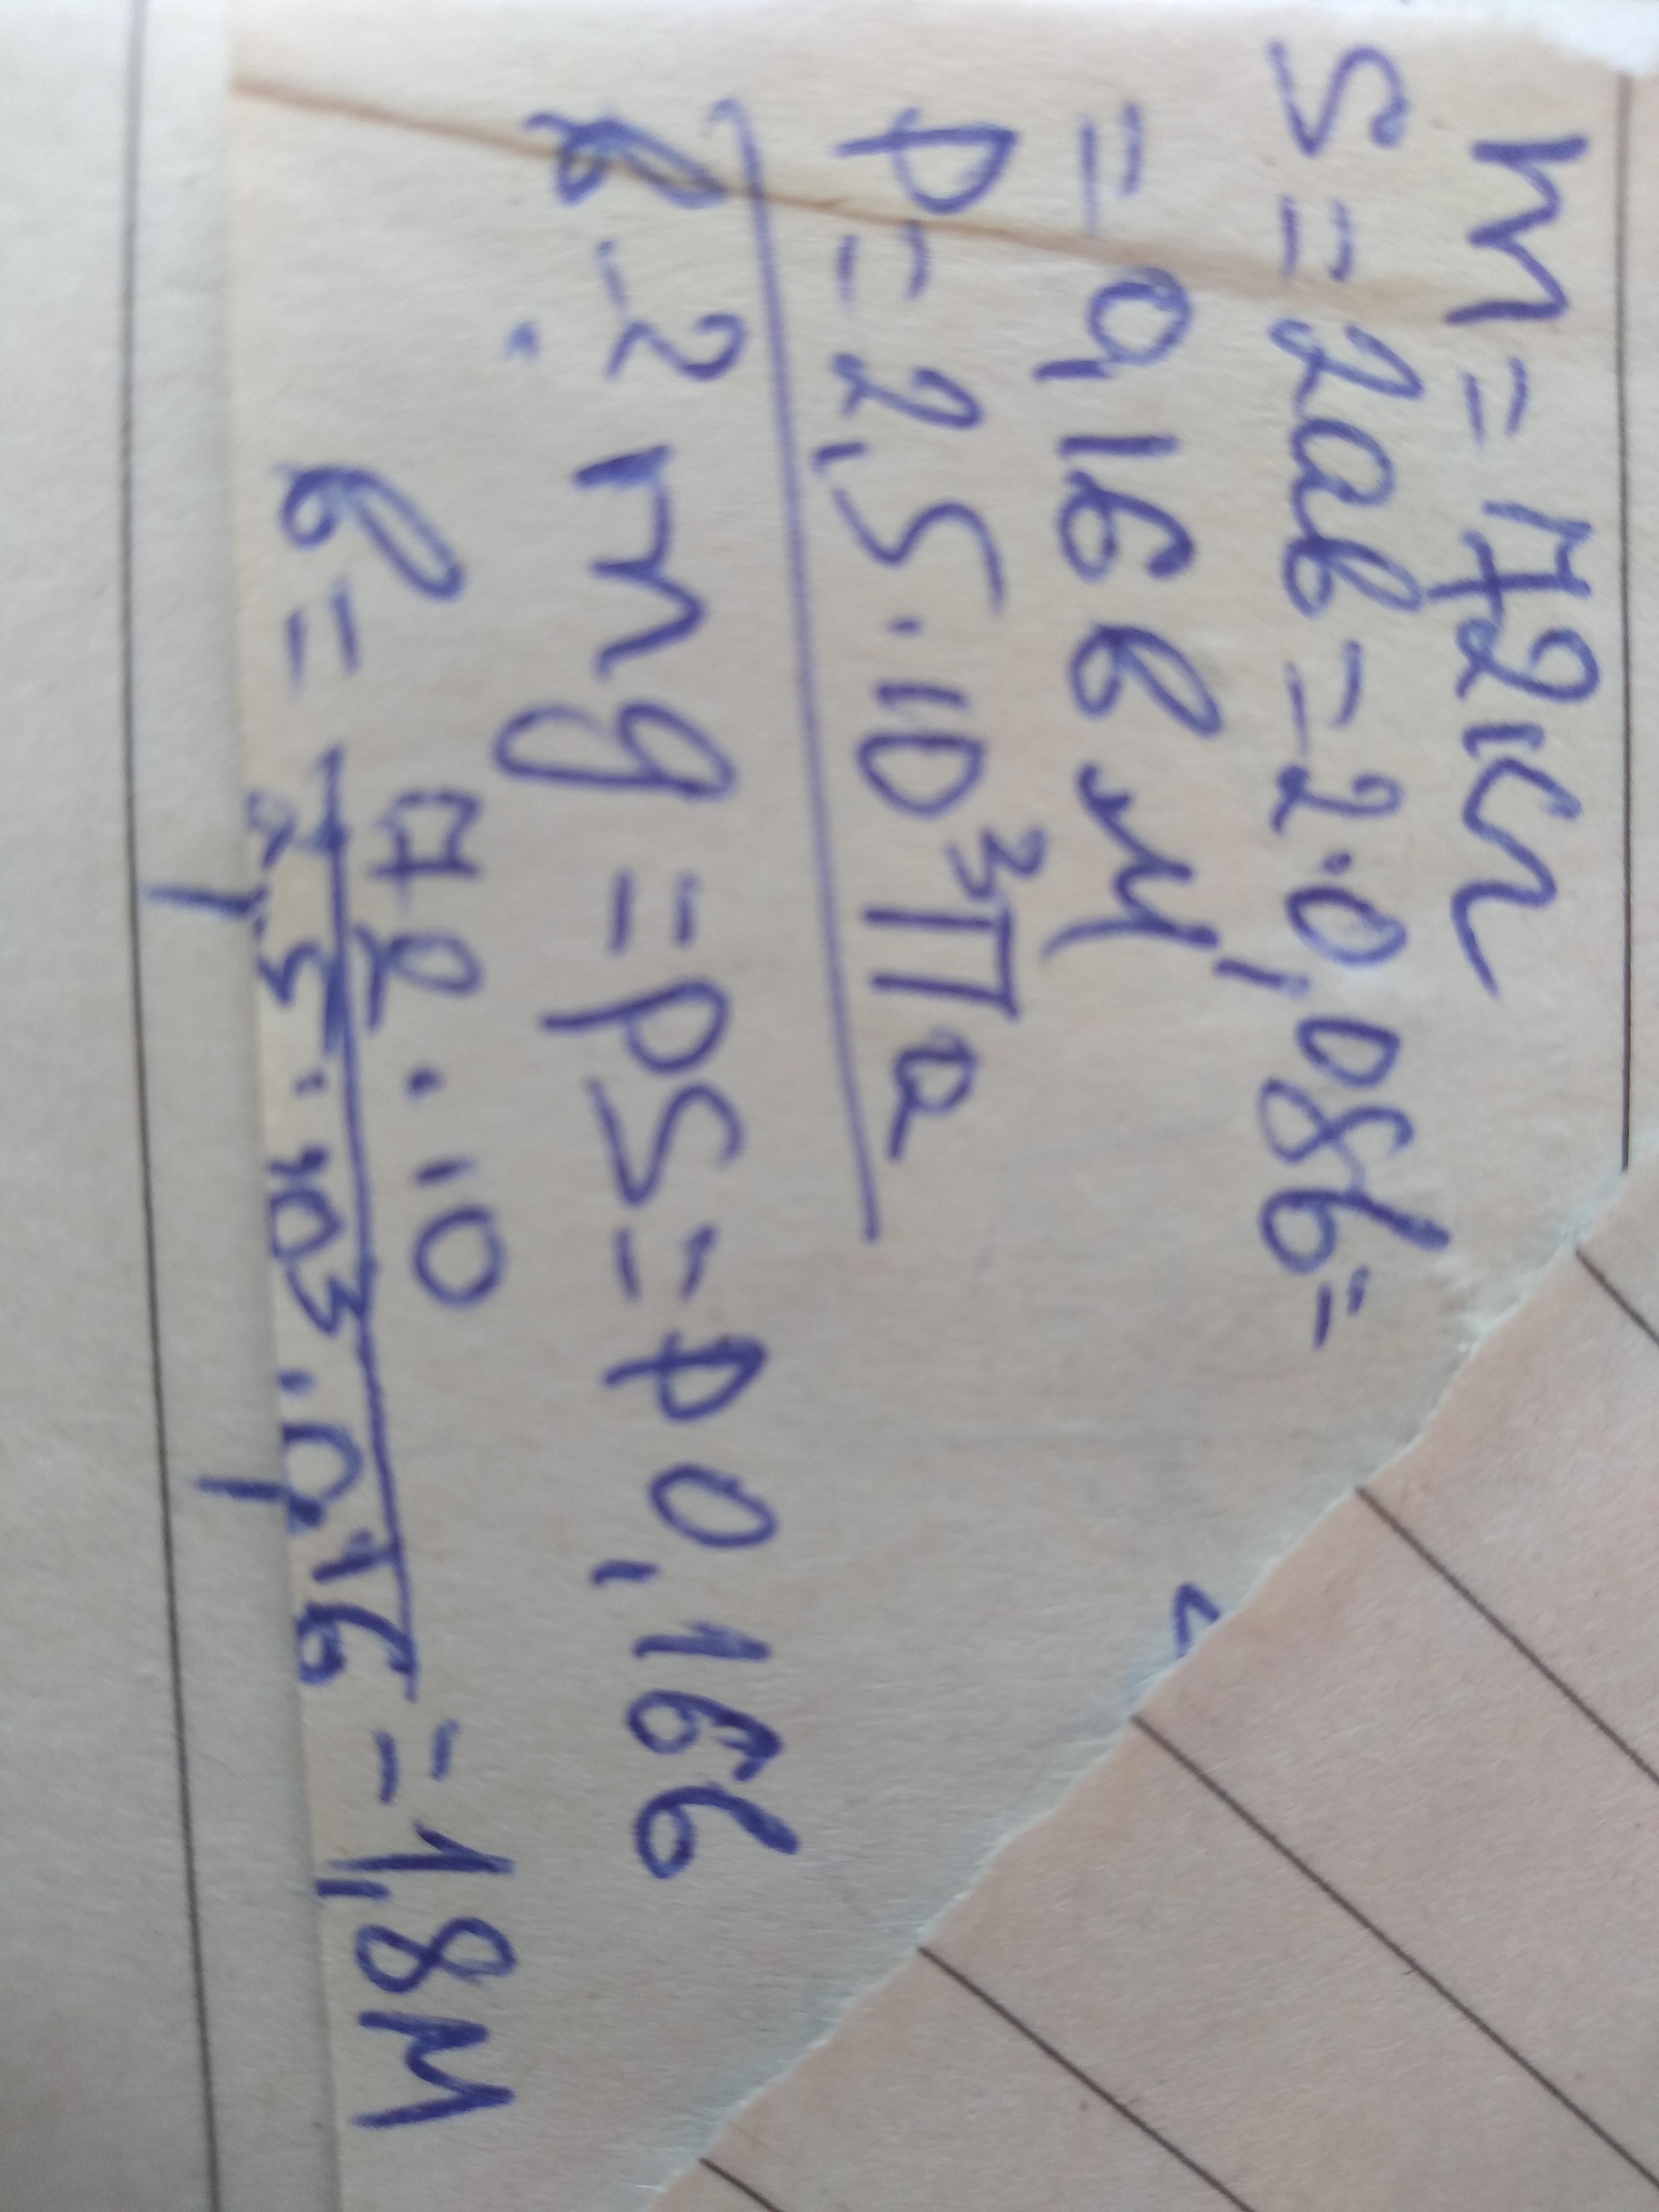 m = 72 кг
S = 2ab = 2·0,08b =
= 0,16b м,
p = 2,5·10³ Па
b - ?
mg = pS = p 0,16b
b = 72·10 / 2,5·10³·0,16 = 1,8 м